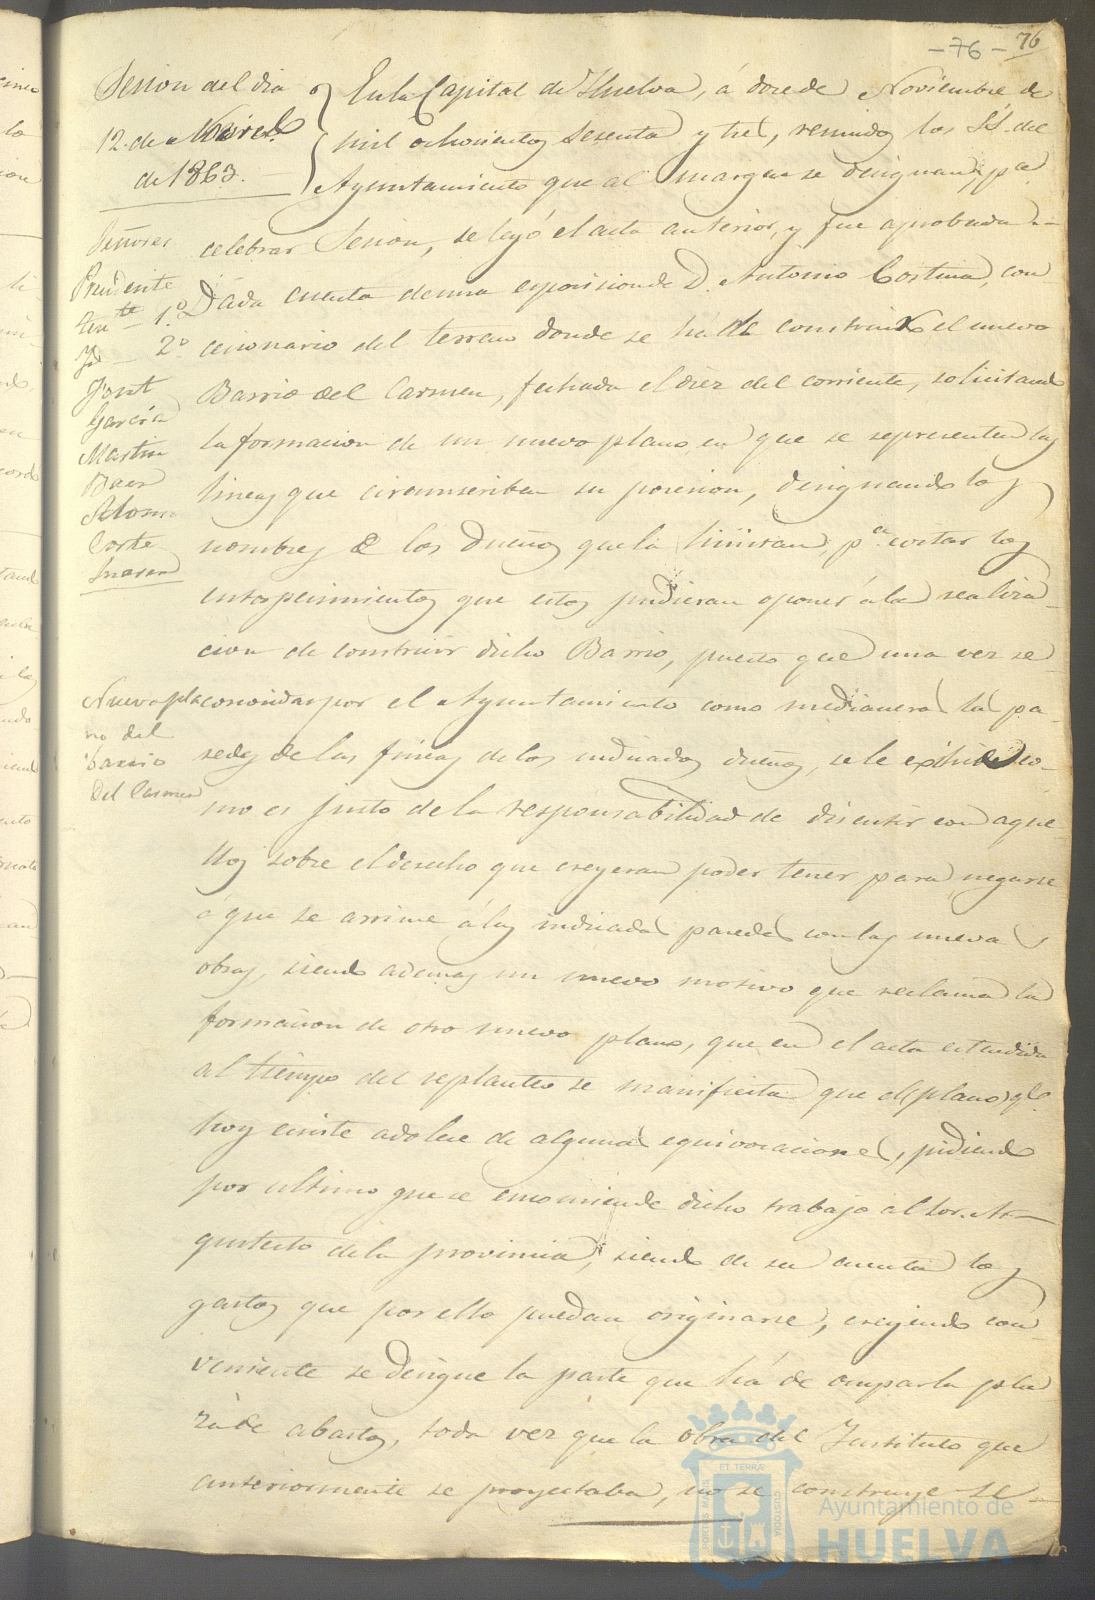 -76- 76
Sesion del dia
12. de Novire.
de 1863.
En la Capital de Huelva, á doce de Noviembre de
mil ochocientos sesenta y tres, reunidos los SS. del
Ayuntamiento que al margen se designan, pa.
celebrar Sesion, se leyó el acta anterior, y fue aprobada
Señores
Presidente
Tente. 1.º
Yd 2º
Jont
García
Martin
Baez
Alonso
Corte
Dada cuenta de una esposicion de D. Antonio Cortina, con
cesionario del terreno donde se há de construir el nuevo
Barrio del Carmen, fechada el diez del corriente, solicitando
la formacion de un nuevo plano en que se representen las
lineas que circunscriban su posesion, designando los
nombres de los dueños que la limitan, pa. evitar los
entorpecimientos que estos pudieran oponer á la realiza
cion de construir dicho Barrio, puesto que una vez re-
Nuevo pla
no del
barrio
del Carmen
conocidas por el Ayuntamiento como medianeras las pa-
redes de las fincas de los indicados dueños, se le exhime co-
mo es justo de la responsabilidad de discutir con aque-
llos sobre el derecho que creyeran poder tener para negarse
á que se arrime á las indicadas paredes con las nuevas
obras, siendo ademas un nuevo motivo que reclama la
formacion de otro nuevo plano, que en el acta estendida
al tiempo del replanteo se manifiesta que el plano qe.
hoy existe adolece de algunas equivocaciones, pidiendo
por ultimo que se encomiende dicho trabajo al Sor. Ar-
quitecto de la provincia, siendo de su cuenta los
gastos que por ello puedan originarse, creyendo con
veniente se designe la parte que há de ocupar la pla
za de abastos, toda vez que la obra del Instituto que
anteriormente se proyectaba, no se construye se-
ET TERRÆ
PORTUS MARIS
CUSTODIA
Ayuntamiento de
HUELVA